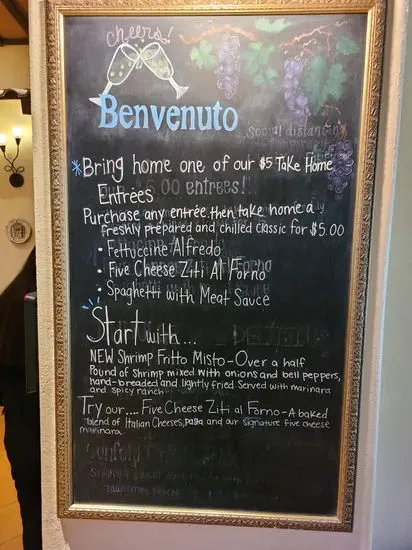 cheers!
Benvenuto
Social distancing
*Bring home one of our $5 Take Home
00 entrees!!
Entrées
Purchase any entrée, then take home a
freshly prepared and chilled classic for $5.00
• Fettuccine Alfredo
• Five Cheese Ziti Al Forno
• Spaghetti with Meat Sauce
Start with...
NEW Shrimp Fritto Misto - Over a half
Pound of Shrimp mixed with onions and bell peppers,
hand-breaded and lightly fried. Served with marinara
and spicy ranch
Try our.... Five Cheese Ziti al Forno - A baked
blend of Italian Cheeses, pasta and our signature five cheese
marinara